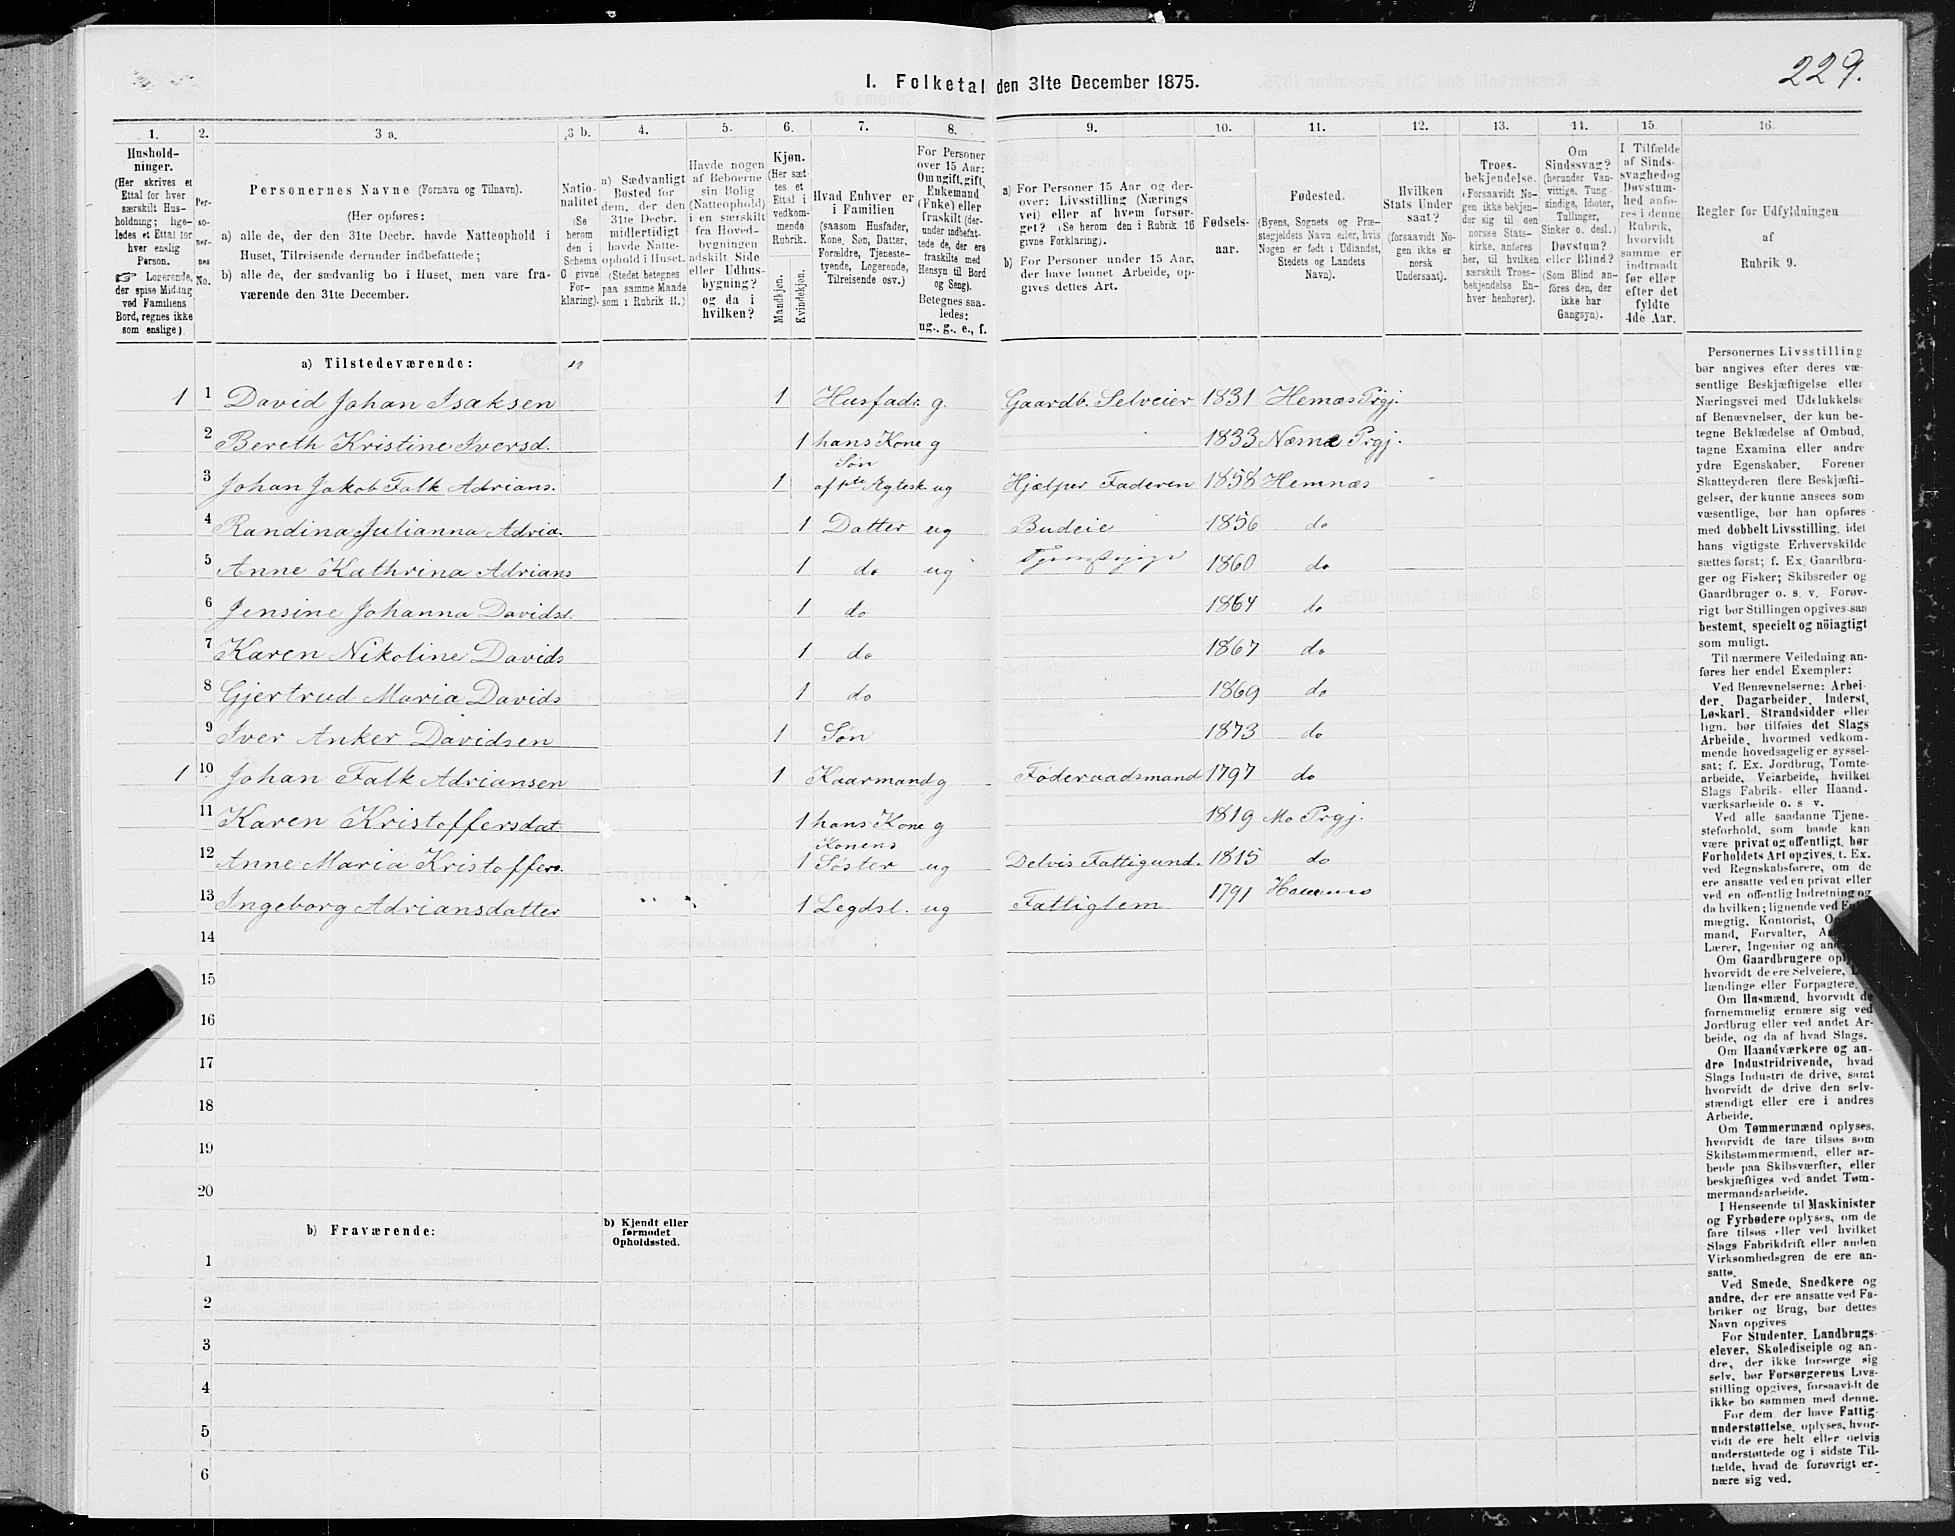 229.
I. Folketal den 31te December 1875.
1. 2. 3 a. 3 b. 4. 5. 6. 7. 8. 9. 10. 11. 12. 13. 14. 15. 16.
Hushold-
ninger.
(Her skrives et
Ettal for hver
særskilt Hus-
holdning; lige-
ledes et Ettal for
hver enslig
Person.
☞ Logerende,
der spise Middag
ved Familiens
Bord, regnes ikke
som enslige).
Per-
so-
ner-
nes
No.
Personernes Navne (Fornavn og Tilnavn).
(Her opføres:
a) alle de, der den 31te Decbr. havde Natteophold i
Huset, Tilreisende derunder indbefattede;
b) alle de, der sædvanlig bo i Huset, men vare fra-
værende den 31te December.
Natio-
nalitet
(Se
herom
den i
Schema
C givne
For-
klaring).
a) Sædvanligt
Bosted for
dem, der den
31te Decbr.
midlertidigt
havde Natte-
ophold i Huset.
(Stedet betegnes
paa samme Maade
som i Rubrik 11.)
Havde nogen
af Beboerne
sin Bolig
(Natteophold)
i en særskilt
fra Hoved-
bygningen
adskilt Side
eller Udhus-
bygning?
og da i
hvilken?
Kjøn.
(Her sæt-
tes et
Ettal i
vedkom-
mende
Rubrik.
Mandkjøn.
Kvindekjøn.
Hvad Enhver er
i Familien
(saasom Husfader,
Kone, Søn, Datter,
Forældre, Tjeneste-
tyende, Logerende,
Tilreisende osv.)
For Personer
over 15 Aar:
Om ugift, gift,
Enkemand
(Enke) eller
fraskilt (der-
under indbefat-
tede de, der ere
fraskilte med
Hensyn til Bord
og Seng).
Betegnes saa-
ledes:
ug., g., e., f.
a) For Personer 15 Aar og der-
over: Livsstilling (Nærings
vei) eller af hvem forsør-
get? (Se herom den i Rubrik 16
givne Forklaring).
b) For Personer under 15 Aar,
der have lønnet Arbeide, op-
gives dettes Art.
Fødsels-
aar.
Fødested.
(Byens, Sognets og Præ-
stegjeldets Navn eller, hvis
Nogen er født i Udlandet,
Stedets og Landets
Navn).
Hvilken
Stats Under
saat?
(forsaavidt No-
gen ikke er
norsk
Undersaat).
Troes-
bekjendelse.
(Forsaavidt No-
gen ikke bekjen-
der sig til den
norske Stats-
kirke, anføres
her, til hvilken
særskilt Troes-
bekjendelse En-
hver henhører).
Om
Sindssvag?
(herunder Van-
vittige, Tung-
sindige, Idioter,
Tullinger,
Sinker o. desl.)
Døvstum?
eller Blind?
(Som Blind an-
føres den, der
ikke har
Gangsyn).
I Tilfælde
af Sinds-
svaghed og
Døvstum-
hed anfø-
res i denne
Rubrik,
hvorvidt
samme er
indtraadt
før eller
efter det
fyldte
4de Aar.
Regler for Udfyldningen
af
Rubrik 9.
a) Tilstedeværende:
1 1 David Johan Isaksen 1 Husfadr. g. Gaardb. Selveier 1831 Hemæs Prgj.
2 Bereth Kristine Iversd. 1 hans Kone g 1833 Næsne Prgj.
3 Johan Jakob Falk Adrians. 1 Søn af 1te Egtesk. ug Hjælper Faderen 1858 Hemnæs
4 Randina Julianna Adria. 1 Datter ug Budeie 1856 do
5 Anne Kathrina Adrians 1 do ug 1860 do
6 Jensine Johanna Davidsd. 1 do 1864 do
7 Karen Nikoline Davids 1 do 1867 do
8 Gjertrud Maria Davids 1 do 1869 do
9 Iver Anker Davidsen 1 Søn 1873 do
1 10 Johan Falk Adriansen 1 Kaarmand g Føderaadsmand 1797 do
11 Karen Kristoffersdat 1 hans Kone g 1819 Mo Prgj.
12 Anne Maria Kristoffers. 1 Konens Søster ug Delvis Fattigund. 1815 do
13 Ingeborg Adriansdatter 1 Legdsl. ug Fattiglem 1791
14
15
16
17
18
19
20
b) Fraværende:
b) Kjendt eller
formodet
Opholdssted.
1
2
3
4
5
6
Personernes Livsstilling
bør angives efter deres væ-
sentlige Beskjæftigelse eller
Næringsvei med Udelukkelse
af Benævnelser, der kun be-
tegne Beklædelse af Ombud,
tagne Examina eller andre
ydre Egenskaber. Forener
Skatteyderen flere Beskjæfti-
gelser, der kunne ansees som
væsentlige, bør han opføres
med dobbelt Livsstilling, idet
hans vigtigste Erhvervskilde
sættes først; f. Ex. Gaardbru-
ger og Fisker; Skibsreder og
Gaardbruger o. s. v. Forøv-
rigt bør Stillingen opgives saa
bestemt, specielt og nöiagtigt
som muligt.
Til nærmere Veiledning an-
føres her endel Exempler:
Ved Benævnelserne: Arbei-
der, Dagarbeider, Inderst,
Løskarl, Strandsidder eller
lign. bør tilføies det Slags
Arbeide, hvormed vedkom-
mende hovedsagelig er syssel-
sat; f. Ex. Jordbrug, Tomte-
arbeide, Veiarbeide, hvilket
Slags Fabrik- eller Haand-
værksarbeide o. s. v.
Ved alle saadanne Tjene-
steforhold, som baade kan
være privat og offentligt, bør
Forholdets Art opgives, t. Ex.
ved Regnskabsførere, om de
ere ansatte ved en privat eller
ved en offentlig Indretning og
da hvilken; lignende ved
mægtig, Kontorist,
mand, Forvalter,
Lærer, Ingeniør og
Om Gaardbrugere
hvorvidt de ere Selveiere,
lændinge eller Forpagtere.
Om Husmænd, hvorvidt de
fornemmelig ernære sig ved
Jordbrug eller ved andet Ar-
beide, og da af hvad Slags.
Om Haandværkere og an-
dre Industridrivende, hvad
Slags Industri de drive, samt
hvorvidt de drive den selv-
stændigt eller ere i andres
Arbeide.
Om Tømmermænd oplyses,
hvorvidt de fare tilsøs som
Skibstømmermænd, eller ar-
beide paa Skibsværfter, eller
beskjæftiges ved andet Tøm-
mermandsarbeide.
I Henseende til Maskinister
og Fyrbødere oplyses, om de
fare tilsøs eller ved hvilket
Slags Fabrikdrift eller anden
Virksomhedsgren de ere an-
satte.
Ved Smede, Snedkere og
andre, der ere ansatte ved Fa-
briker og Brug, bør dettes
Navn opgives
For Studenter, Landbrugs-
elever, Skoledisciple og an-
dre, der ikke forsørge sig
selv, bør Forsørgerens Livs-
stilling opgives, forsaavidt de
ikke bo sammen med denne.
For dem, der have Fattig-
understøttelse, oplyses, hvor-
vidt de ere helt eller delvis
understøttede og i sidste Til-
fælde, hvad de forøvrigt er-
nære sig ved.